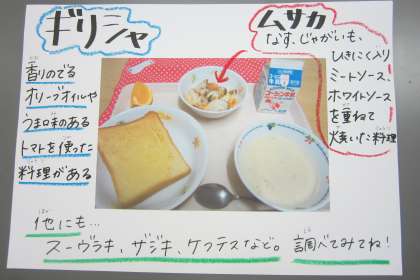 ギリシャ
香りのでる
オリーブオイルや
うま味のある
トマトを使った
料理がある
ムサカ
なす、じゃがいも、
ひきにく入り
ミートソース、
ホワイトソース
を重ねて
焼いた料理
他にも…
スーヴラキ、ザジキ、ケフテスなど。調べてみてね!